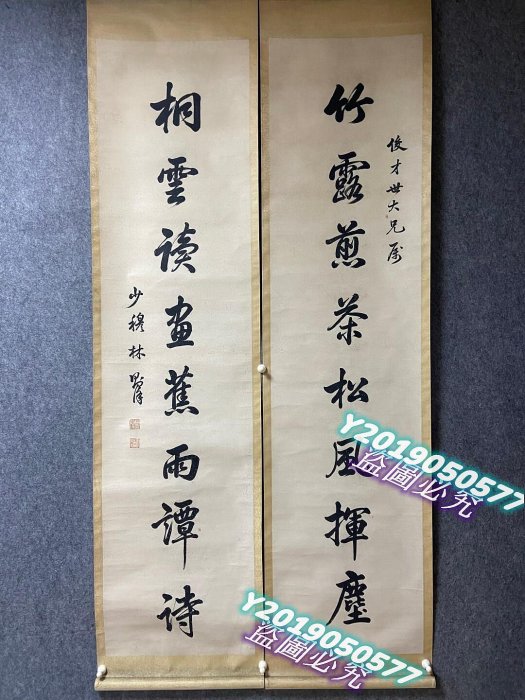 竹露煎茶松風揮麈
俊才世大兄屬
桐雲读畫蕉雨譚詩
少穆林則徐
Y2019050577
盜圖必究
Y2019050577
盜圖必究